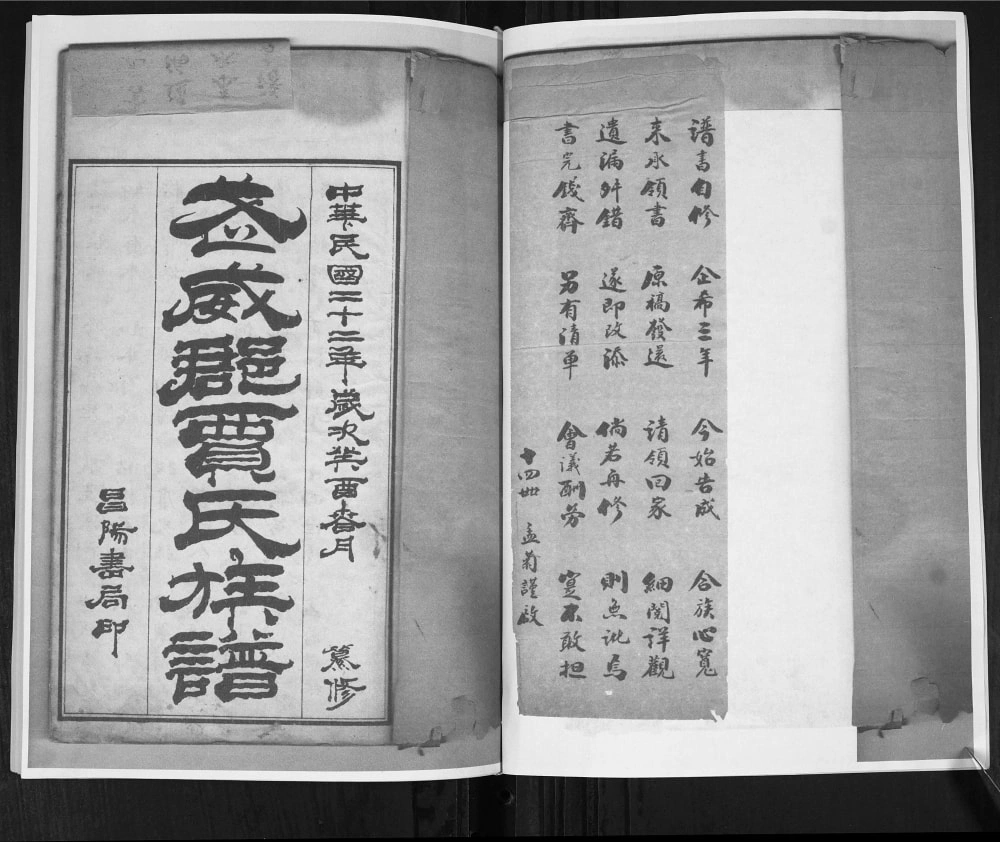 中華民國二十二年歲次癸酉春月 纂修
武威郡賈氏族譜
昌陽書局印
譜書自修 企希三年 今始告成 合族心寬
来承領書 原稿發還 請領回家 細閱詳觀
遺漏舛錯 遂即改添 倘若再修 則無訛焉
書完錢齊 另有清單 會議酬勞 寔不敢担
十四世 孟菊謹啟